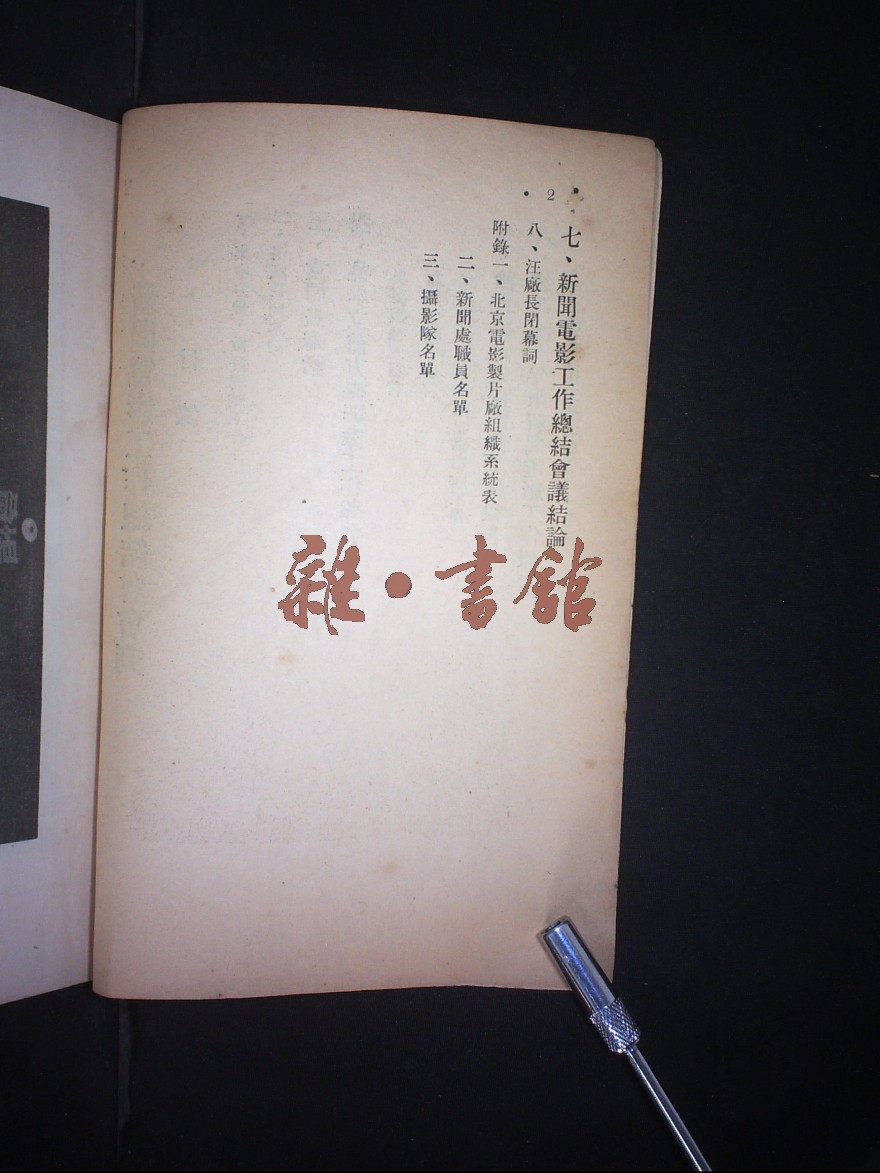 • 2 •
七、新聞電影工作總結會議結論
八、汪廠長閉幕詞
附錄一、北京電影製片廠組織系統表
二、新聞處職員名單
三、攝影隊名單
雜•書館